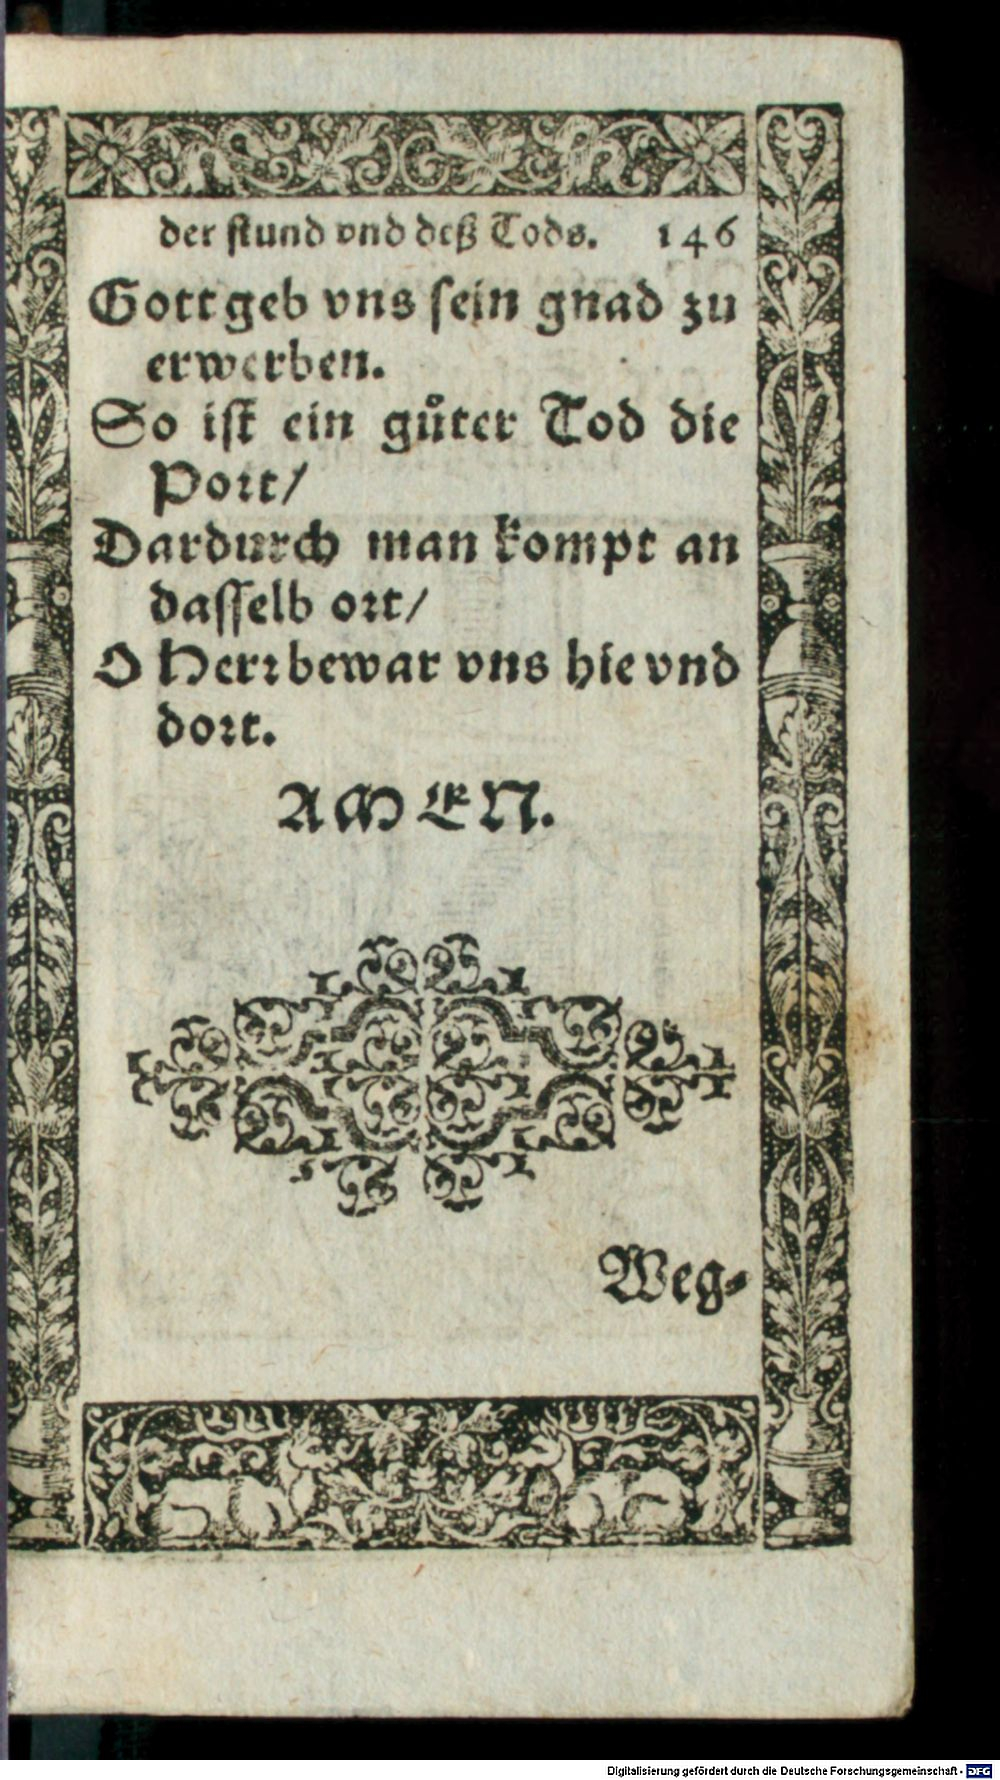 der stund vnd deß Tods. 146
Gott geb vns sein gnad zu
erwerben.
So ist ein gůter Tod die
Port/
Dardurch man kompt an
dasselb ort/
O Herr bewar vns hie vnd
dort.
AMEN.
Weg-
Digitalisierung gefördert durch die Deutsche Forschungsgemeinschaft - DFG